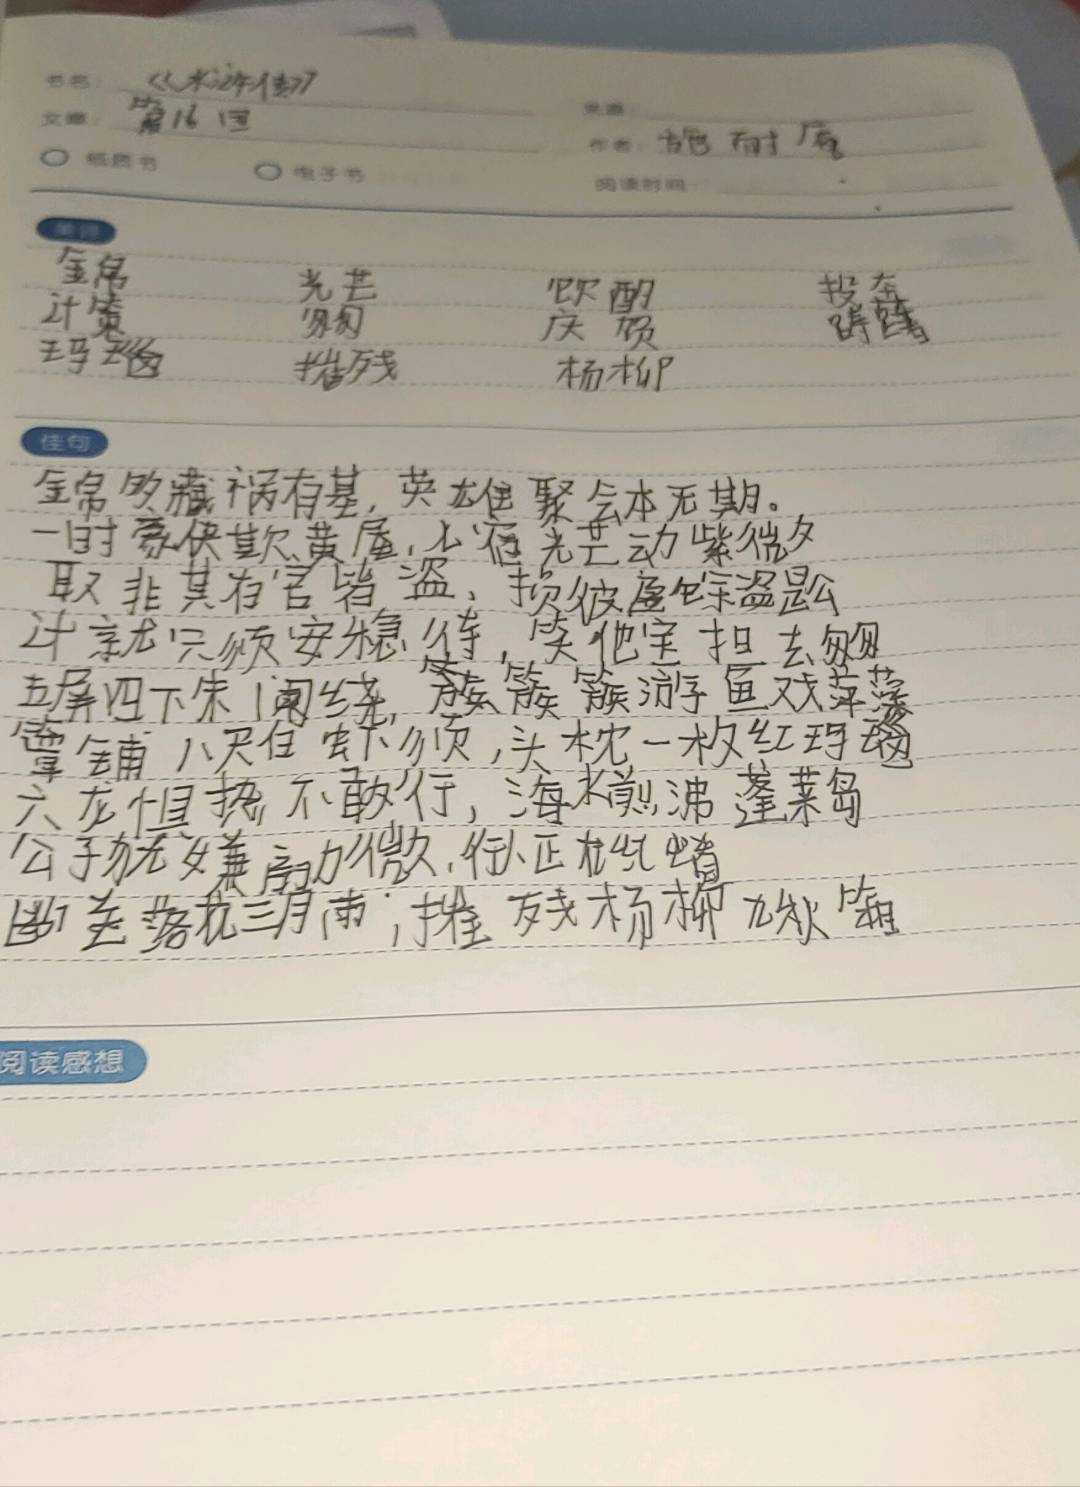 书名：《水浒传》
来源：
文章：第16回
作者：施耐庵
纸质书 电子书
阅读时间：
美词
金帛 光芒 饮酌 投奔
计策 匆匆 庆贺 踌躇
玛瑙 摧残 杨柳
佳句
金帛多藏祸有基，英雄聚会本无期。
一时豪侠欺黄屋，八宿光芒动紫微
取非其有官皆盗，损彼盈余盗是公
计就只须安稳待，笑他宝担去匆匆
玉屏四下朱阑绕，簇簇游鱼戏萍藻
簟铺八尺白虾须，头枕一枚红玛瑙
六龙惧热不敢行，海水煎沸蓬莱岛
公子犹嫌扇力微，行人正在红尘
断送落花三月雨，摧残杨柳九秋霜
阅读感想